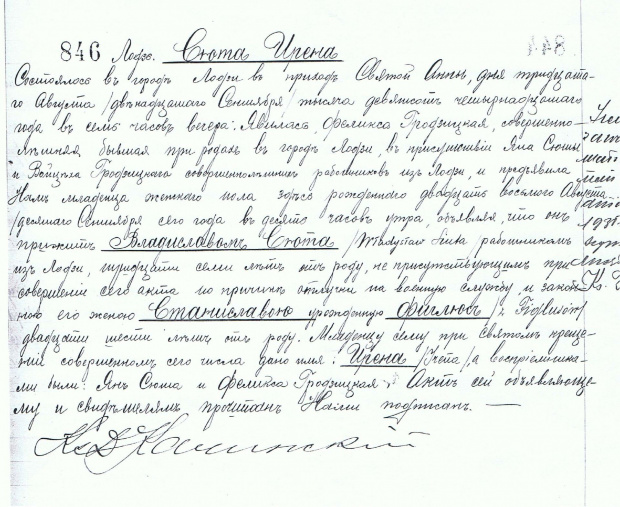 846 Лодзь. Сюта Ирена
Состоялось въ городѣ Лодзи въ приходѣ Святой Анны, дня тридцата-
го Августа /двѣнадцатаго Сентября/ тысяча девятсотъ четырнадцатаго
года въ семь часовъ вечера. Явилась Феликса Гродзицкая, совершенно-
лѣтняя бывшая при родахъ въ городѣ Лодзи, въ присутствіи Яна Сюты
и Гродзицкаго совершеннолѣтнихъ работниковъ изъ Лодзи, и предъявила
Намъ младенца женскаго пола здѣсь рожденнаго двадцать восьмого Августа
/десятаго Сентября сего года въ десять часовъ утра, объявляя, что онъ
прижитъ Владиславомъ Сюта /Władysław Siuta/ работникомъ
изъ Лодзи, тридцати семи лѣтъ отъ роду, не присутствующимъ при
совершеніи сего акта по причинѣ отлучки на военную службу и закон-
ною его женою Станиславою урожденною Фиглюсъ
двадцати шести лѣтъ отъ роду. Младенцу сему при святомъ креще-
ніи совершенномъ сего числа дано имя: Ирена /Irena/, а воспріемника-
ми были: Янъ Сюта и Феликса Гродзицкая. Актъ сей объявляюще-
му и свидѣтелямъ прочитанъ Нами подписанъ. —